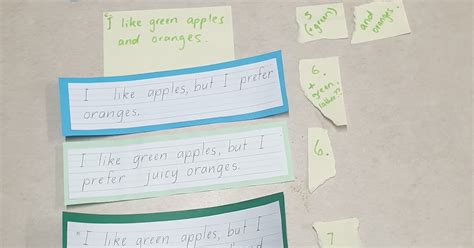 *I like green apples
and oranges.
5
(+green)
and
oranges.
I like apples, but I prefer
oranges.
6.
+
green
I like green apples, but I
prefer juicy oranges.
6.
* I like green apples, but I
7